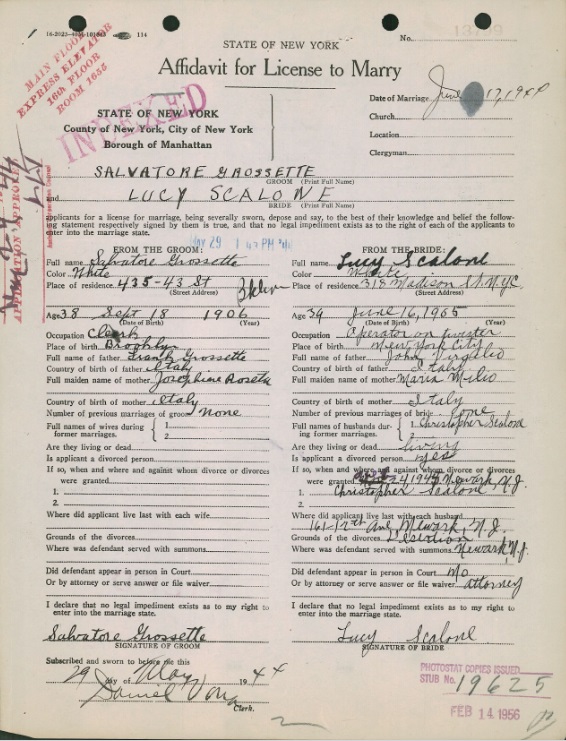 No.
STATE OF NEW YORK
Affidavit for License to Marry
MAIN FLOOR
EXPRESS ELEVATOR
16th FLOOR
ROOM 1655
INDEXED
Date of Marriage June 17, 1944
Church
Location
Clergyman
STATE OF NEW YORK
County of New York, City of New York
Borough of Manhattan
SALVATORE GROSSETTE
GROOM (Print Full Name)
and LUCY SCALONE
BRIDE (Print Full Name)
applicants for a license for marriage, being severally sworn, depose and say, to the best of their knowledge and belief the follow-
ing statement respectively signed by them is true, and that no legal impediment exists as to the right of each of the applicants to
enter into the marriage state.
APPLICATION APPROVED
May 29 1 47 PM '44
FROM THE GROOM:
Full name Salvatore Grossette
Color White
Place of residence 435-43 St Bklyn
(Street Address)
Age 38 Sept 18 1906
(Date of Birth) (Year)
Occupation Clerk
Place of birth Brooklyn
Full name of father Frank Grossette
Country of birth of father Italy
Full maiden name of mother Josephine
Country of birth of mother Italy
Number of previous marriages of groom None
Full names of wives during
former marriages.
1.
2.
Are they living or dead
Is applicant a divorced person
If so, when and where and against whom divorce or divorces
were granted
1.
2.
Where did applicant live last with each wife
Grounds of the divorces
Where was defendant served with summons
Did defendant appear in person in Court
Or by attorney or serve answer or file waiver
I declare that no legal impediment exists as to my right to
enter into the marriage state.
Salvatore Grossette
SIGNATURE OF GROOM
Subscribed and sworn to before me this
29 day of May 1944
Daniel
Clerk.
FROM THE BRIDE:
Full name Lucy Scalone
Color White
Place of residence 318 Madison St. N.Y.C.
(Street Address)
Age 39 June 16, 1905
(Date of Birth) (Year)
Occupation Operator on
Place of birth New York City
Full name of father John Virgilio
Country of birth of father Italy
Full maiden name of mother Maria Milio
Country of birth of mother Italy
Number of previous marriages of bride one
Full names of husbands dur-
ing former marriages.
1. Christopher Scalone
2.
Are they living or dead living
Is applicant a divorced person yes
If so, when and where and against whom divorce or divorces
were granted 24, 1944 Newark, N.J.
1. Christopher Scalone
2.
Where did applicant live last with each husband
161-12th Ave Newark, N.J.
Grounds of the divorces Desertion
Where was defendant served with summons Newark N.J.
Did defendant appear in person in Court no
Or by attorney or serve answer or file waiver attorney
I declare that no legal impediment exists as to my right to
enter into the marriage state.
Lucy Scalone
SIGNATURE OF BRIDE
PHOTOSTAT COPIES ISSUED
STUB No. 19625
FEB 14 1956